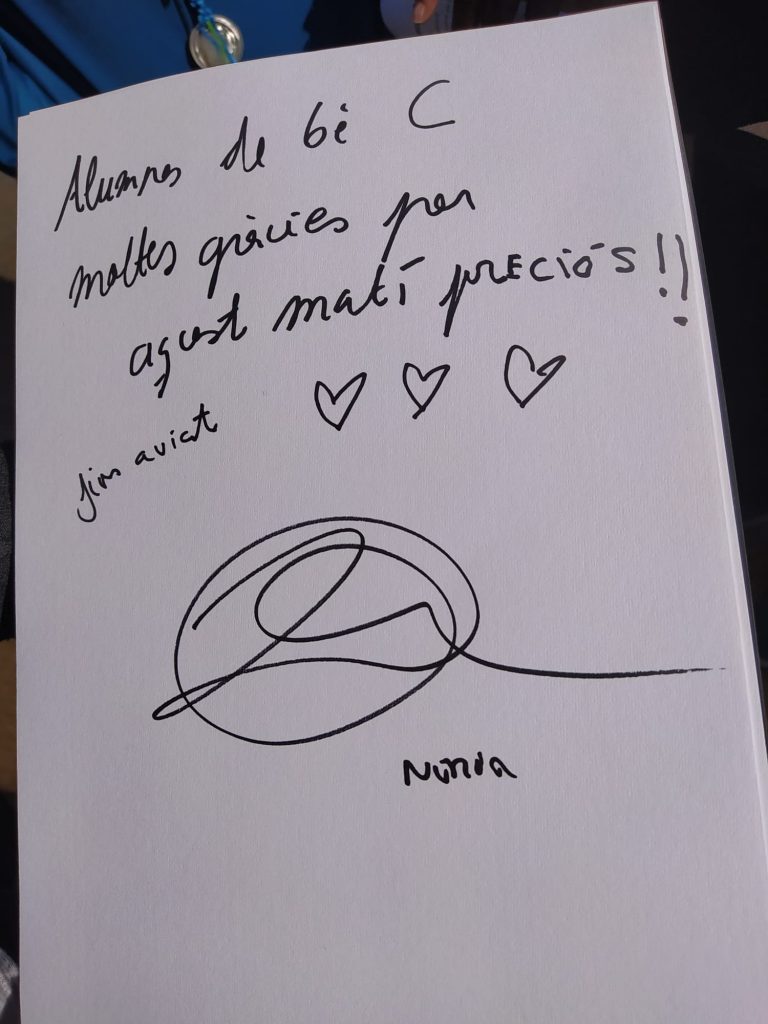 Alumnes de 6è C
moltes gràcies per
aquest matí preciós!!
fins aviat
Núria